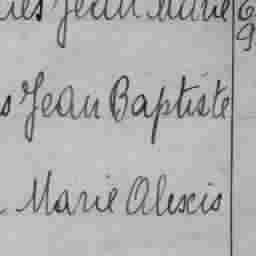 Jean Marie 6
9
s Jean Baptiste
Marie Alexis